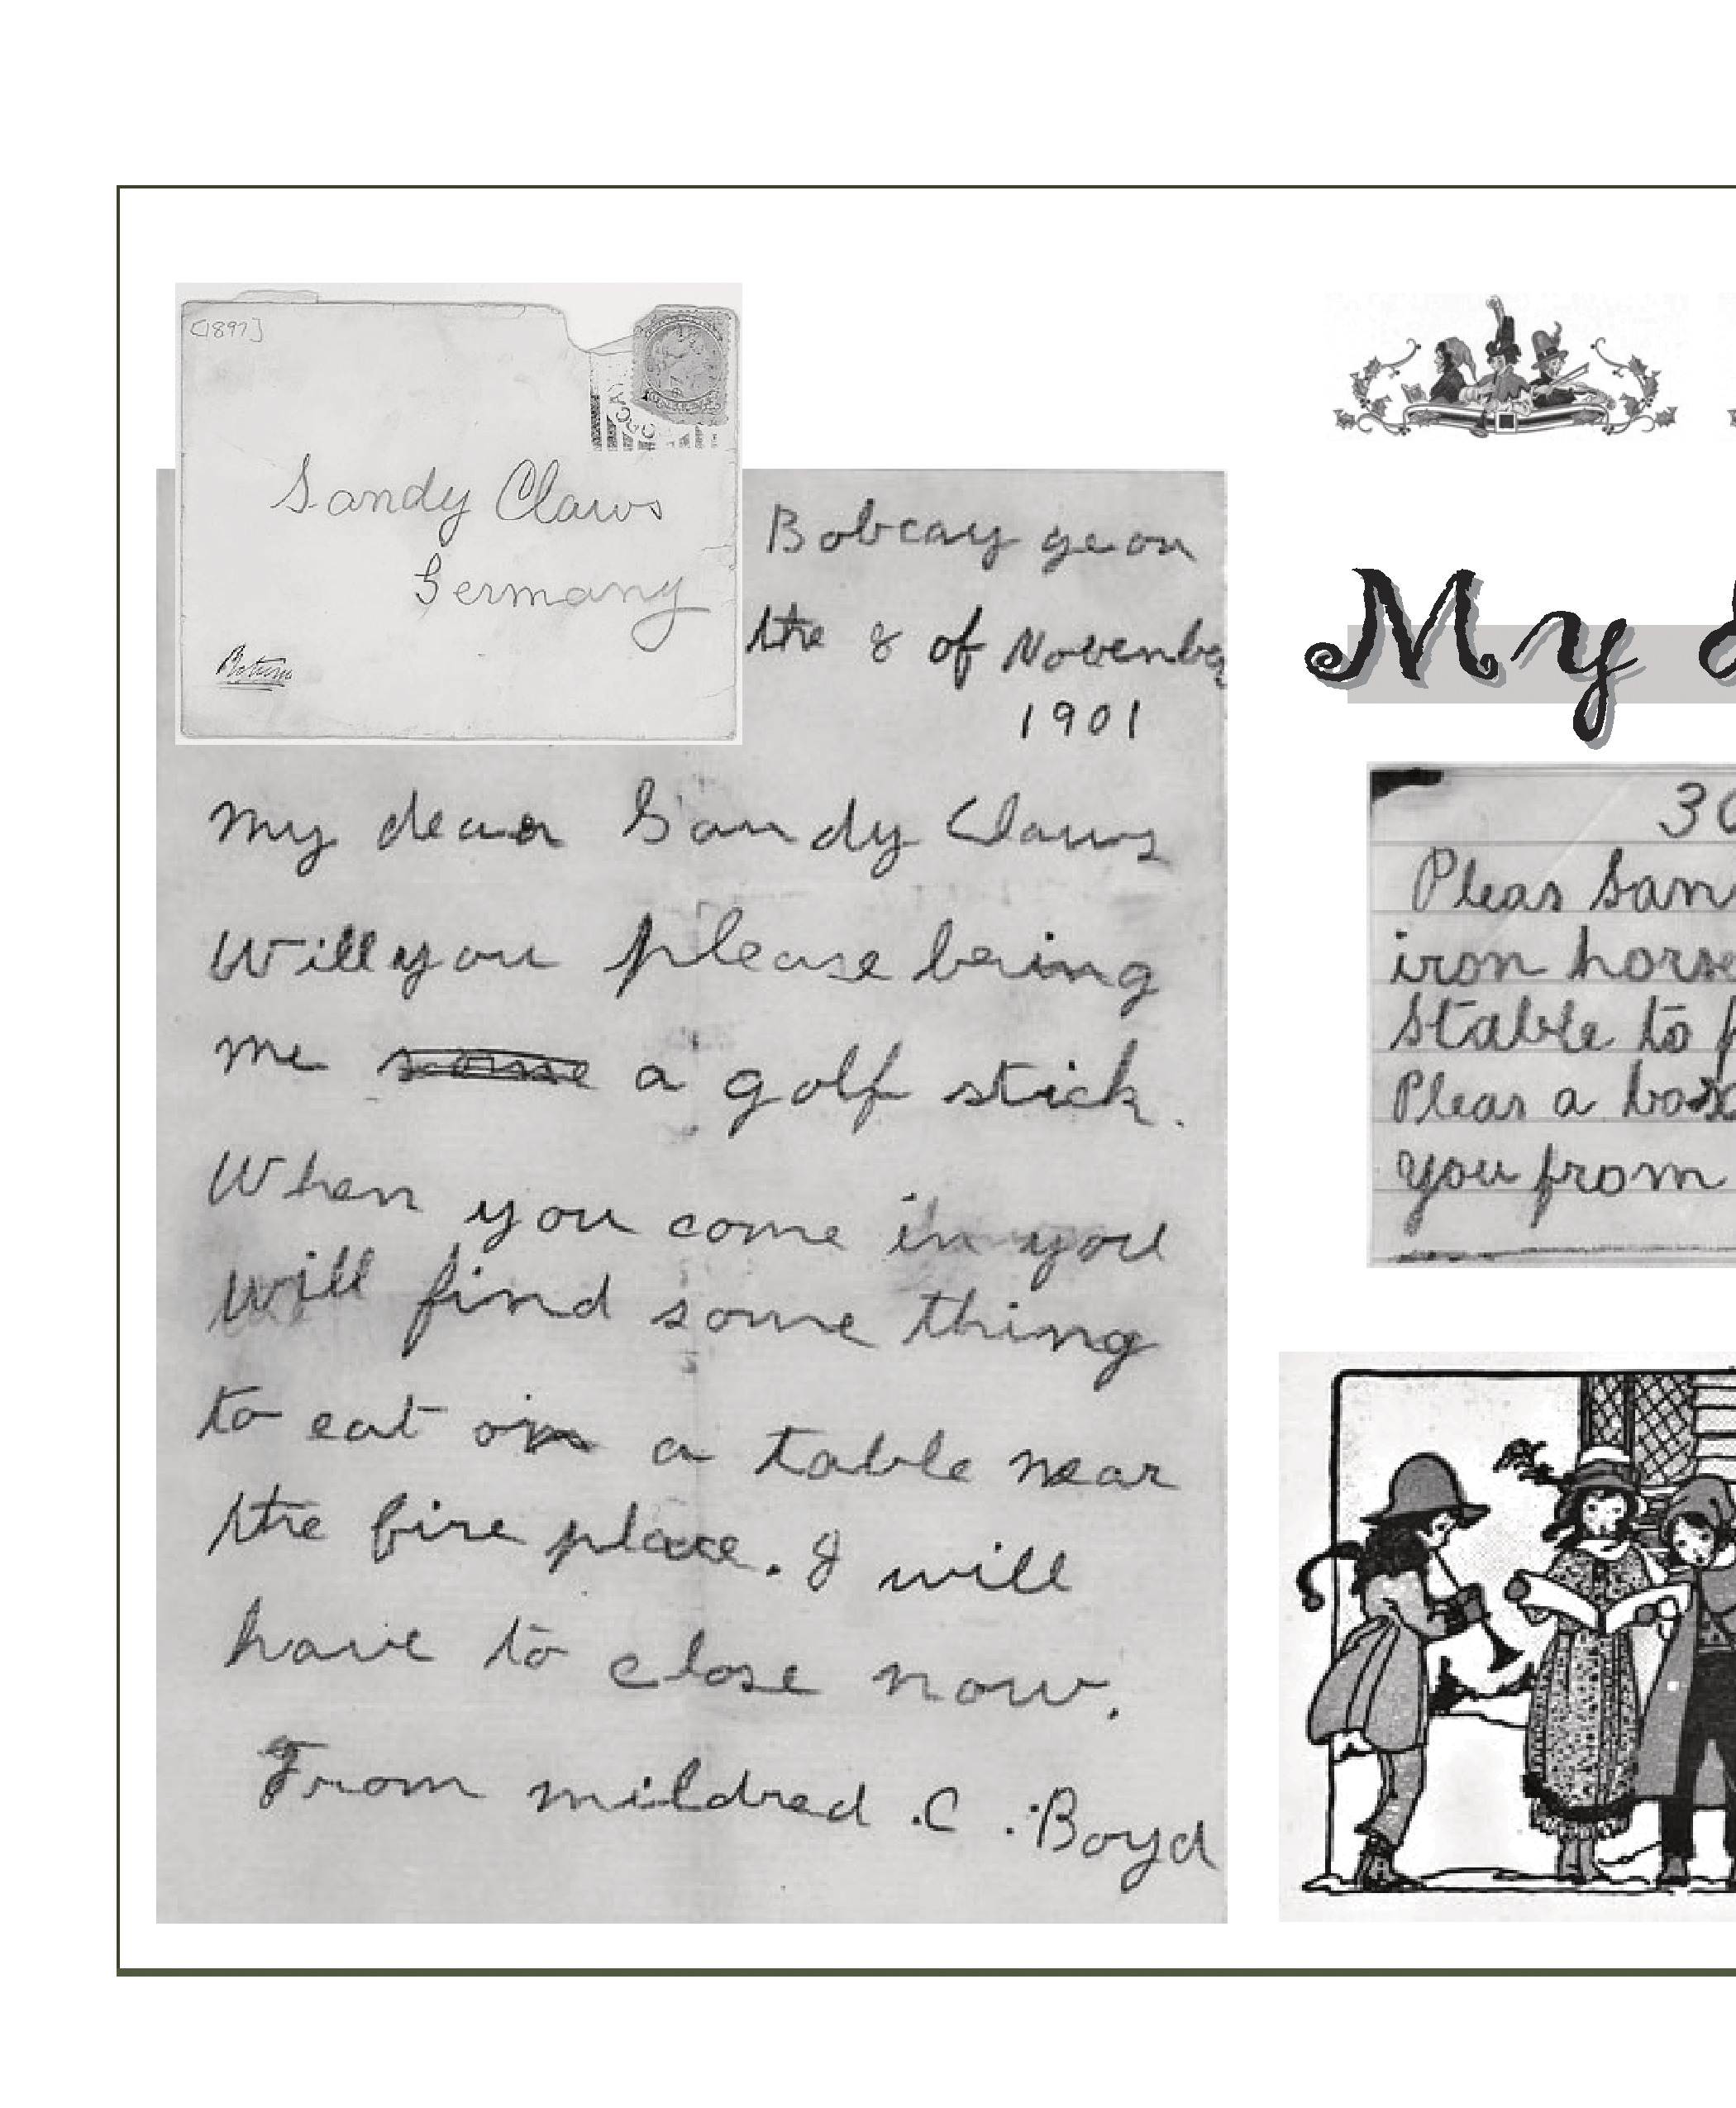 [1897]
Sandy Claws
Germany
Return
Bobcay geon
the 8 of November
1901
My dear Sandy Claws
Will you please bring
me some a golf stick.
When you come in you
will find some thing
to eat on a table near
the fire place. I will
have to close now.
From mildred .C. Boyd
My
30
Pleas San
iron horse
Stable to
Pleas a box
you from